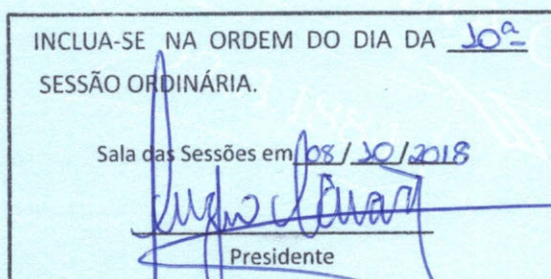 INCLUA-SE NA ORDEM DO DIA DA 10ª
SESSÃO ORDINÁRIA.
Sala das Sessões em 08/10/2018
Presidente